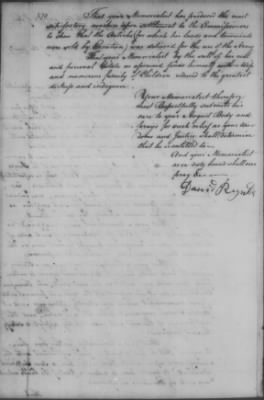 That your Memorialist has produced the most
satisfactory vouchers upon settlement to the Commissioners
to Shew that the Articles for which his lands and tenements
were sold by Execution, was delivered for the use of the Army
That your Memorialist by the sale of his real
and personal Estate as aforesaid finds himself with a Wife
and numerous family of Children reduced to the greatest
distress and indigence.
Your Memorialist therefore
most Respectfully submits his
case to your August Body and
prays for such relief as your wis-
dom and Justice shall determine
that he is entitled to
And your Memorialist
as in duty bound shall ever
pray &c